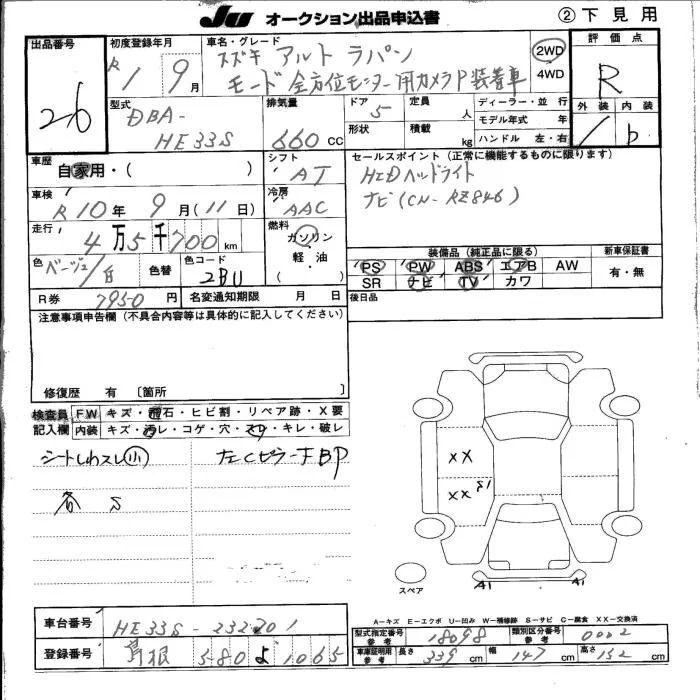 JU オークション出品申込書
② 下見用
出品番号
26
初度登録年月
R1 9月
車名・グレード
スズキ アルト ラパン
モード 全方位モニター用カメラP装着車
2WD
4WD
評価点
R
外装 内装
/ b
型式
DBA-
HE33S
排気量
660 cc
ドア 5
形状
定員 人
積載 kg
ディーラー・並 行
モデル年式 年
ハンドル 左・右
車歴
自家用・( )
シフト
AT
セールスポイント(正常に機能するものに限ります)
HIDヘッドライト
ナビ(CN-RZ846)
車検
R10年 9月(11日)
冷房
AAC
走行
4万5千700 km
燃料
ガソリン
軽・油
( )
色 ベージュ/白
色替
色コード
2BU
装備品(純正品に限る)
PS PW ABS エアB AW
SR ナビ TV カワ
新車保証書
有・無
R券 7950円
名変通知期限 月 日
後日品
注意事項申告欄(不具合内容等は具体的に記入してください)
修復歴 有 〔箇所 〕
検査員 FW キズ・飛石・ヒビ割・リペア跡・X要
記入欄 内装 キズ・汚レ・コゲ・穴・スレ・キレ・破レ
シートしわスレ(小)
左Cピラー下BP
各 S
XX
XX
S1
A1
A1
スペア
A-キズ E-エクボ U-凹み W-補修跡 S-サビ C-腐食 XX-交換済
車台番号 HE33S-232201
登録番号 島根 580 よ 1065
型式指定番号 参考 18098
類別区分番号 参考 0002
車庫証明用 参考 長さ 339 cm 幅 147 cm 高さ 152 cm